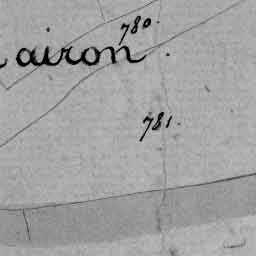 780.
airon.
781.